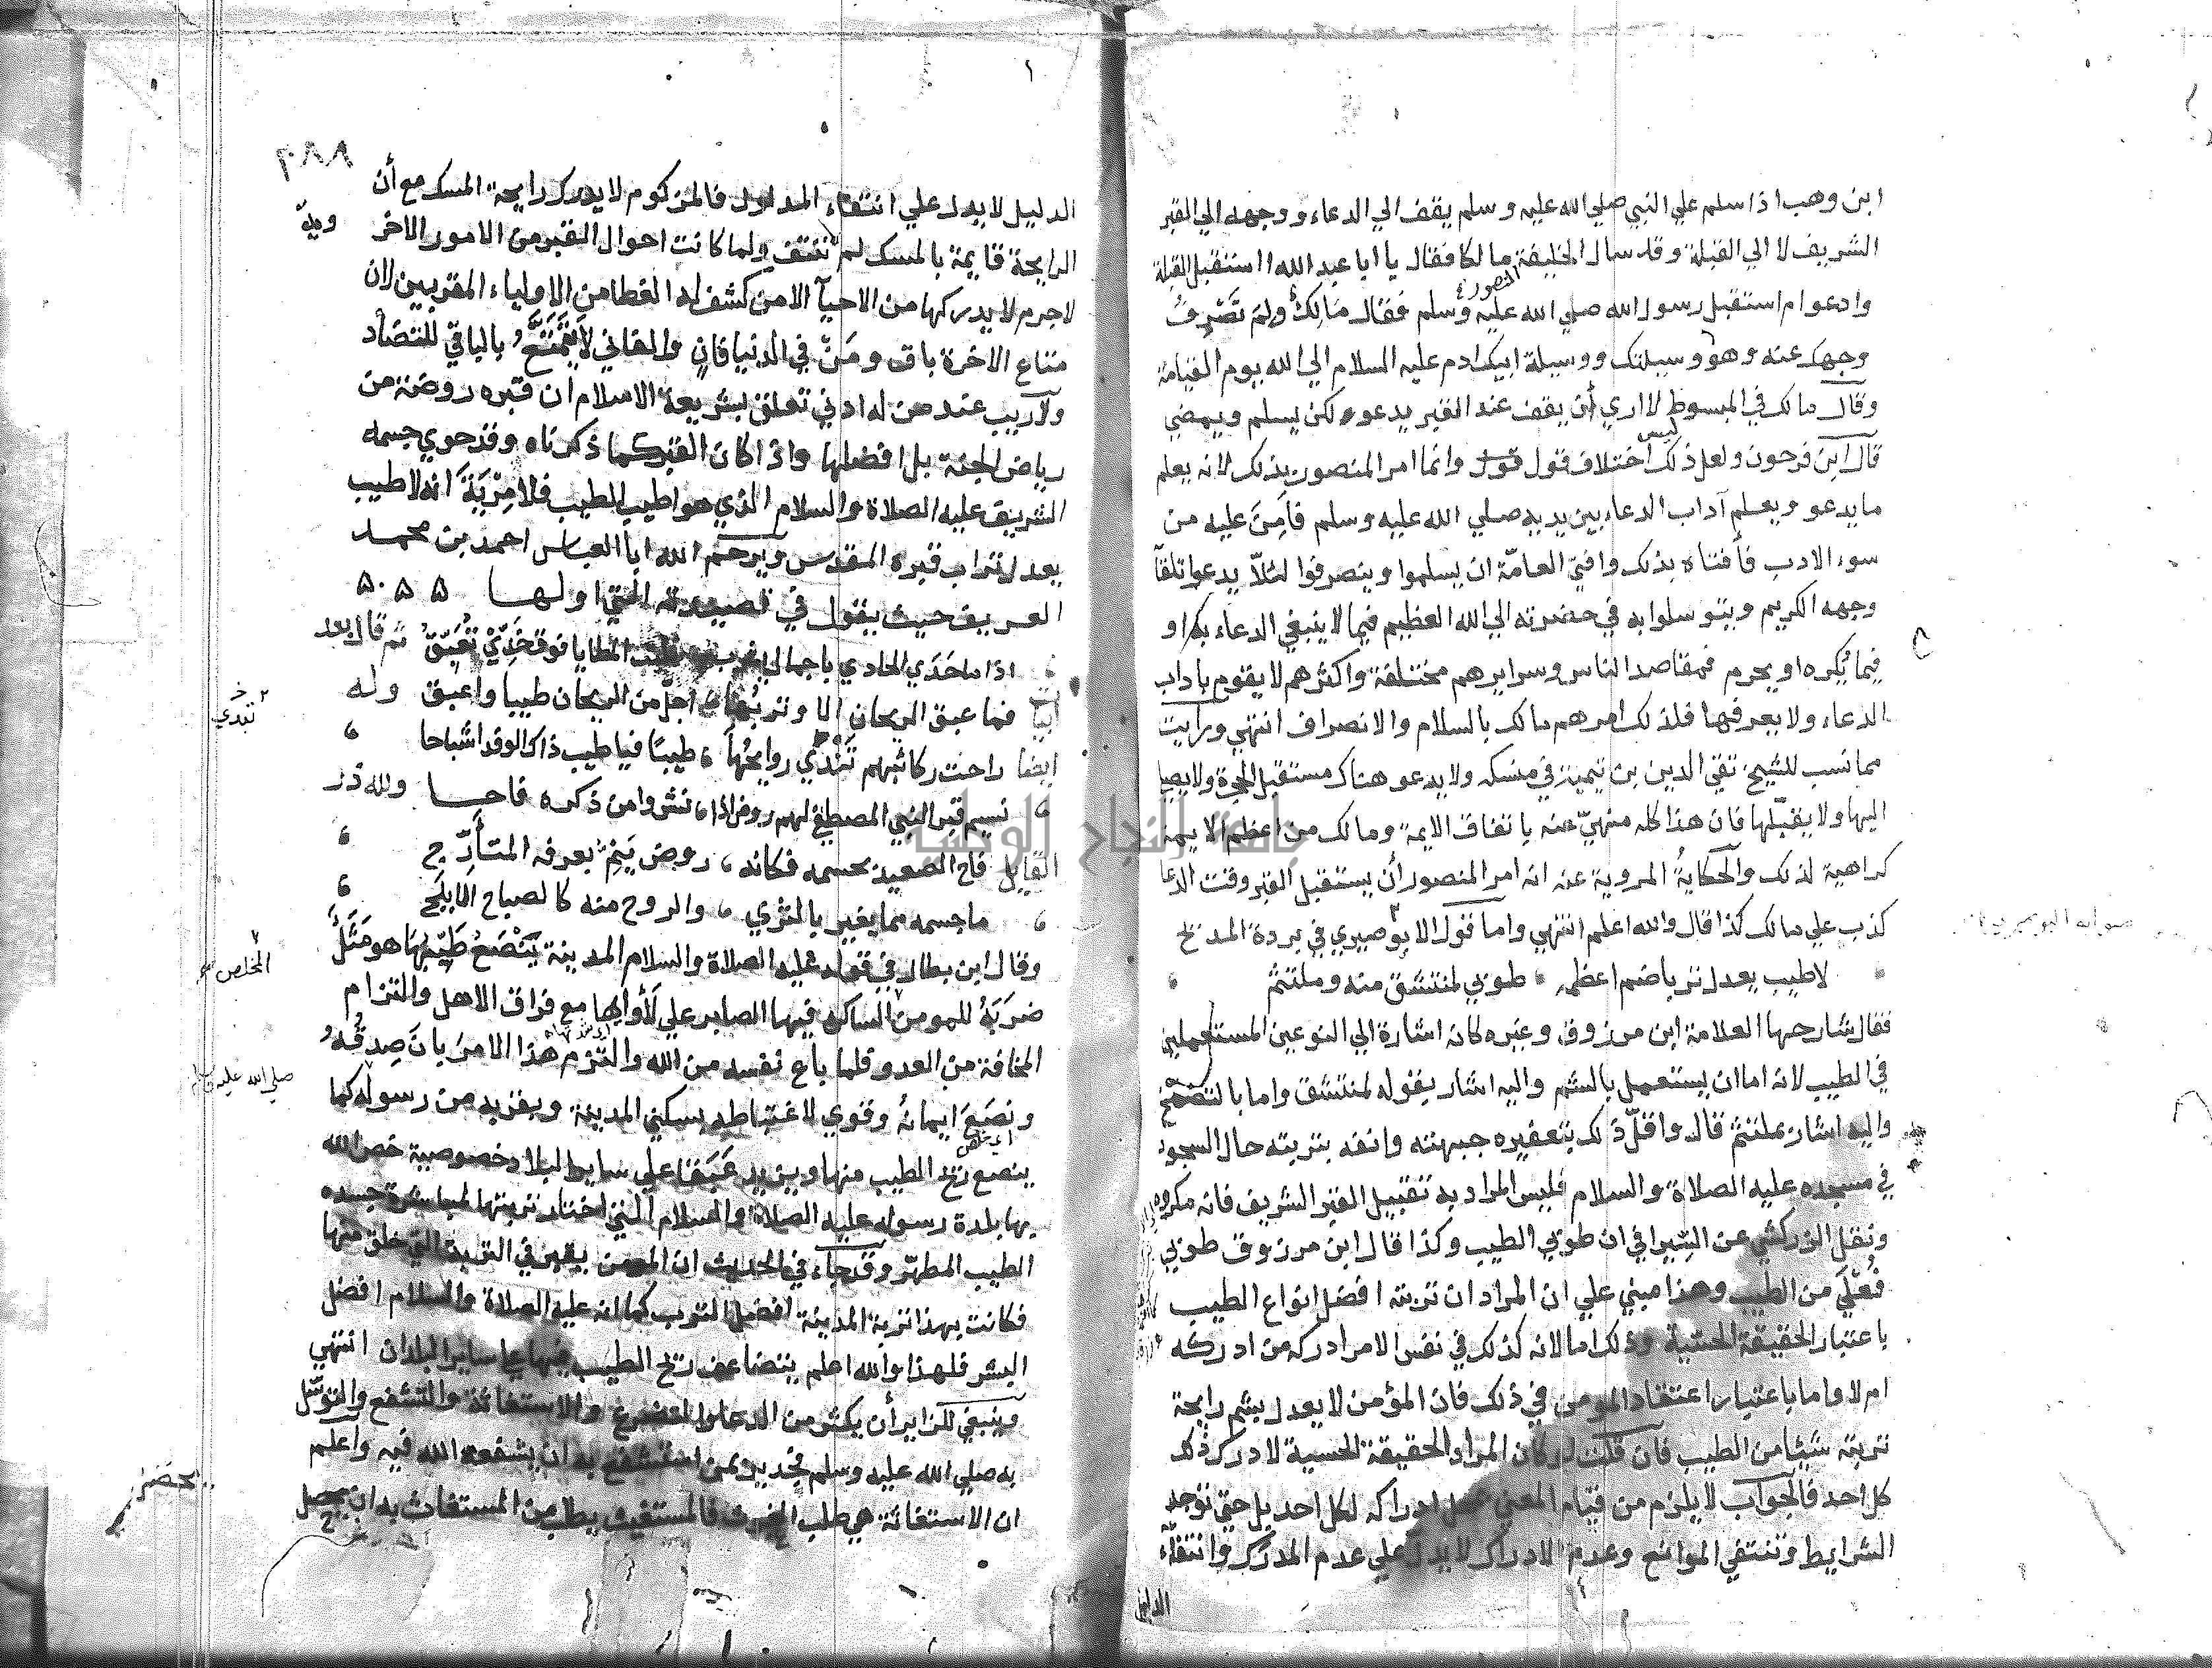 ابن وهب اذا سلم علي النبي صلي الله عليه وسلم يقف الي الدعاء ووجهه الي القبر
الشريف لا الي القبلة وقد سال الخليفة مالكا فقال يا ابا عبد الله ااستقبل القبلة
المنصور
وادعوا م استقبل رسول الله صلي الله عليه وسلم فقال مالك ولم تصرف
وجهك عنه وهو وسيلتك ووسيلة ابيك ادم عليه السلام الي الله يوم القيامة
وقال مالك في المبسوط لا اري أن يقف عند القبر يدعو لكن يسلم ويمضي
ليس
قال ابن فرحون ولعل ذلك اختلاف قول وانما امر المنصور بذلك لانه يعلم
ما يدعو ويعلم آداب الدعاء بين يديه صلي الله عليه وسلم فأمن عليه من
سوء الادب فأفتاه بذلك وافتي العامة ان يسلموا وينصرفوا لئلا يدعوا تلقآ
وجهه الكريم ويتوسلوا به في حضرته الي الله العظيم فيما لا ينبغي الدعاء به او
فيما يكره او يحرم فمقاصد الناس وسرايرهم مختلفة واكثرهم لا يقوم باداب
الدعاء ولا يعرفها فلذلك امرهم مالك بالسلام والانصراف انتهي ورايت
مما نسب للشيخ تقي الدين بن تيمية في منسكه ولا يدعو هناك مستقبل الحجرة ولا يصلي
اليها ولا يقبلها فان هذا كله منهي عنه باتفاق الايمة ومالك من اعظم الايمة
كراهية لذلك والحكاية المروية عنه انه امر المنصور أن يستقبل القبر وقت الدعا
كذب علي مالك كذا قال والله اعلم انتهي واما قول الابوصيري في بردة المديح
صوابه البوصيري
لا طيب يعدل تربا ضم اعظمه طوبي لمنتشق منه وملتثم
فقال شارحها العلامة ابن مرزوق وغيره كانه اشارة الي النوعين المستعملين
في الطيب لانه اما ان يستعمل بالشم واليه اشار بقوله لمنتشق واما بالتضمخ
واليه اشار بملتثم قال واقل ذلك بتعفيره جبهته وانفه بتربته حال السجود
في مسجده عليه الصلاة والسلام فليس المراد به تقبيل القبر الشريف فانه مكروه
ونقل الزركشي عن السيرافي ان طوبي الطيب وكذا قال ابن مرزوق طوبي
فعلي من الطيب وهذا مبني علي ان المراد ان تربته افضل انواع الطيب
باعتبار الحقيقة الحسية وذلك اما لانه كذلك في نفس الامر ادركه من ادركه
ام لا واما باعتبار اعتقاد المومن في ذلك فان المؤمن لا يعدل بشم رايحة
تربته شيئا من الطيب فان قلت لو كان المراد الحقيقة الحسية لادرك ذلك
كل احد فالجواب لا يلزم من قيام المعني بمحل ادراكه لكل احد بل حتي توجد
الشرايط وتنتفي الموانع وعدم الادراك لا يدل علي عدم المدرك وانتفآء
الدليل
الدليل لا يدل علي انتفاء المدلول فالمزكوم لا يدرك رايحة المسك مع أن
الرايحة قايمة بالمسك لم تنتف ولما كانت احوال القبر من الامور الاخر
وية
لاجرم لا يدركها من الاحيآ الا من كشف له الغطا من الاولياء المقربين لان
متاع الاخرة باق ومن في الدنيا فان والفاني لا يتمتع بالباقي للتضاد
ولا ريب عند من له ادني تعلق بشريعة الاسلام ان قبره روضة من
رياض الجنة بل افضلها واذا كان القبر كما ذكرناه وقد حوي جسمه
الشريف عليه الصلاة والسلام الذي هو اطيب الطيب فلا مرية انه لا طيب
يعدل تراب قبره المقدس ويرحم الله ابا العباس احمد بن محمد
العريف حيث يقول في قصيدته التي اولها
اذا ما حدي الحادي باجمال يثرب فليت المطايا فوق خدي تعبق ثم قال بعد
ابيات فما عبق الريحان الا وتربها اجل من الريحان طيبا واعبق وله
ايضا راحت ركائبهم تندي روايحها طيبا فيا طيب ذاك الوفد اشباحا
تبدي
نسيم قبر النبي المصطفي لهم روض اذا نشروا من ذكره فاحا ولله در
القايل فاح الصعيد بجسمه فكانه روض ينم بعرفه المتأرج
ما جسمه مما يغير بالثري والروح منه كالصباح الابلج
وقال ابن بطال في قوله عليه الصلاة والسلام المدينة ينصع طيبها هو مثل
المخلص
ضربه للمومن الساكن فيها الصابر علي لأوايها مع فراق الاهل والتزام
المخافة من العدو فلما باع نفسه من الله والتزم هذا الامر بان صدقه
صلي الله عليه وسلم
ونصع ايمانه وقوي لاغتباطه بسكني المدينة وبقربه من رسوله كما
اي يخلص
ينصع ريح الطيب منها ويزيد عبقا علي ساير البلاد خصوصية خص الله
بها بلدة رسوله عليه الصلاة والسلام الذي اختار تربتها لمباشرة جسده
الطيب المطهر وقد جاء في الحديث ان المومن يقبر في التربة التي خلق منها
فكانت بهذا تربة المدينة افضل الترب كما انه عليه الصلاة والسلام افضل
البشر فلهذا والله اعلم يتضاعف ريح الطيب فيها علي ساير البلدان انتهي
وينبغي للزاير أن يكثر من الدعاء والتضرع والاستغاثة والتشفع والتوسل
به صلي الله عليه وسلم فجدير بمن استشفع به ان يشفعه الله فيه واعلم
ان الاستغاثة هي طلب الغوث فالمستغيث يطلب من المستغاث به ان يحصل
جامعة النجاح الوطنية